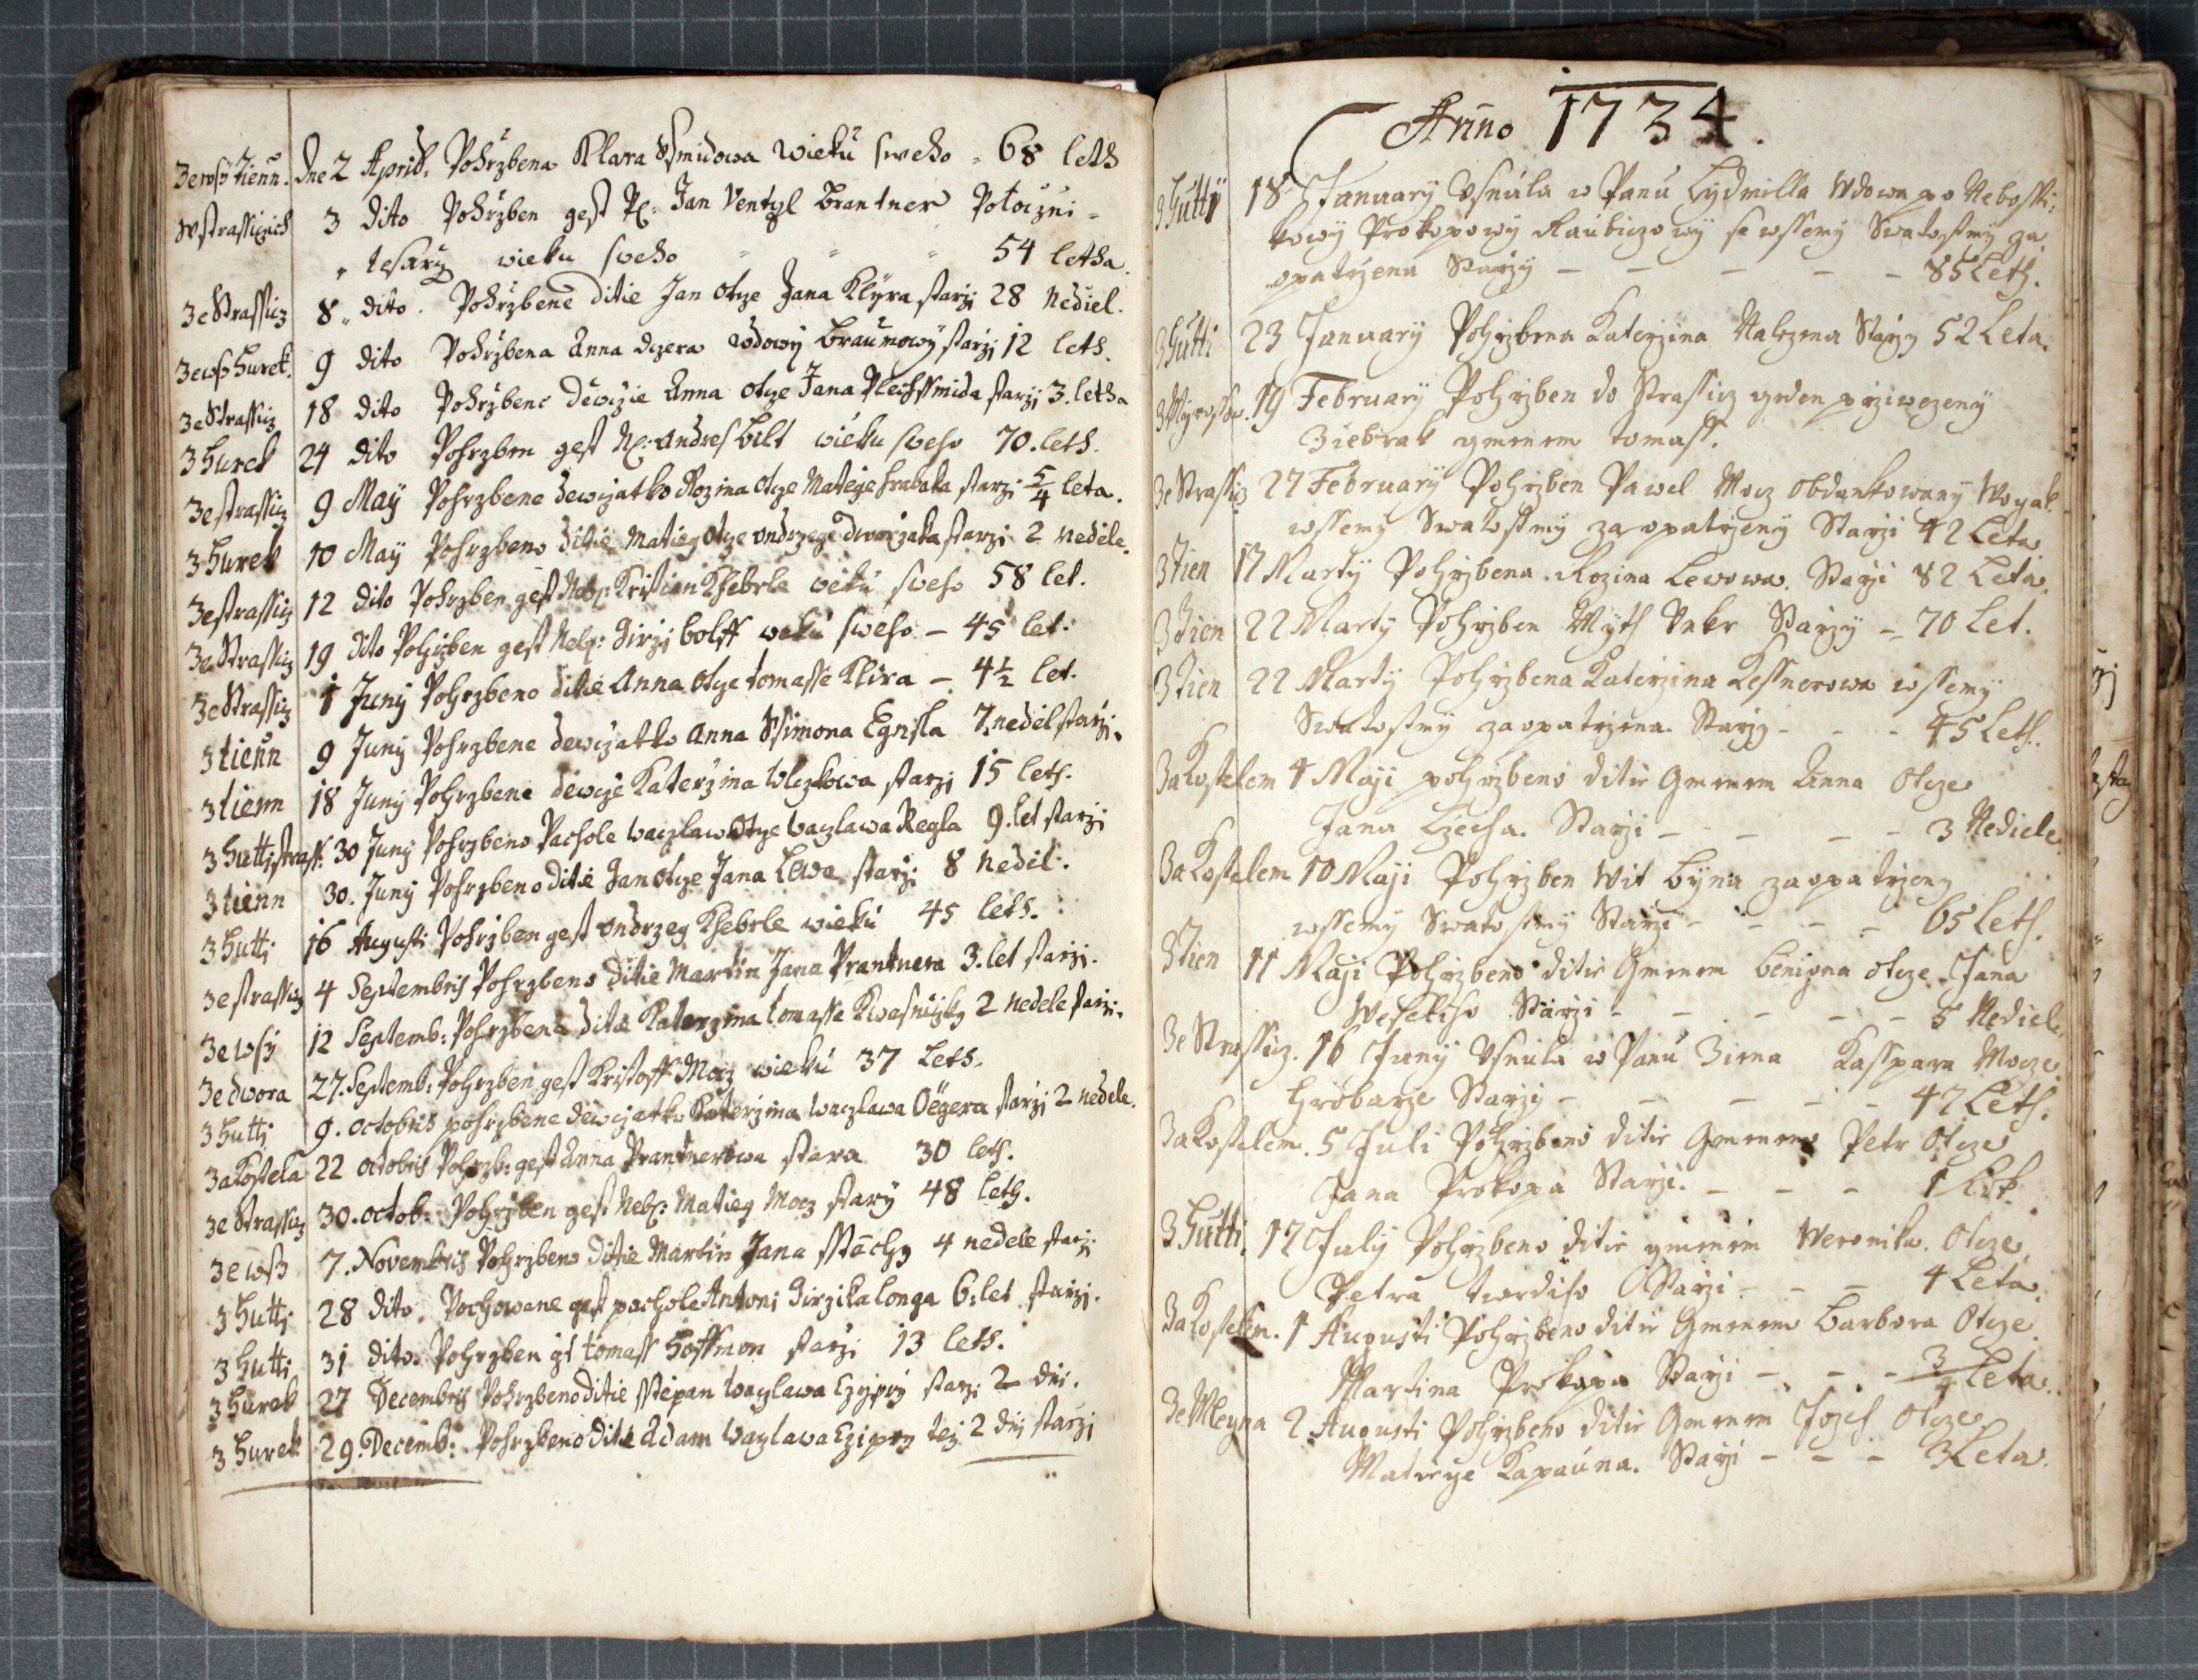 Zewsy Tienn. dne 2 Apriḷ: Pohrzbena Klara Ssmidowa wieku sweho 68 leth
w Strassiczich 3 dito Pohrzben gest Pc: Jan Ventzl Brantner
tesarz wieku sweho 54 letha.
Ze Strassicz 8 dito Pohrzbene ditie Jan otcze Jana Klyra starzi 28 Nediel.
Zewsy Hurek. 9 dito Pohrzbena Anna dczera wdowy Braunowy starzi 12 leth.
Ze Strassicz 18 dito Pohrzbene dewczie Anna otcze Jana Plechssmida starzi 3. letha
Z Hurek 24 dito Pohrzben gest Nc: Andres Bilt wieku sweho 70. leth.
Ze strassicz 9 Maÿ Pohrzbene dewczatko Rozina otcze Matege Hrabaka starzi 5/4 leta.
Z Hurek 10 Maÿ Pohrzbeno ditie Matieg otcze ondrzege dworzaka starzi 2 nedele.
Ze strassicz 12 dito Pohrzben gest Neb: Kristian Khebrle weku sweho 58 let.
Ze Strassicz 19 dito Pohrzben gest Neb: Girzi bolff weku sweho – 45 let.
Ze Strassicz 1 Juny Pohrzbeno ditie Anna otcze tomasse Klira – 4½ let.
Z tienn 9 Juny Pohrzbene dewczatko Anna Ssimona Egnisla 7. nedel starzi.
Z tienn 18 Juny Pohrzbene dewcze Katerzina Wlczkowa starzi 15 leth.
Z Huttj strass: 30 Juny Pohrzbeno Pachole waczlaw otcze waczlawa Regla 9. let starzi
Z tienn 30. Juny Pohrzbeno ditie Jan otcze Jana Lewa starzi 8 nedil.
Z Huttj 16 Augusti Pohrzben gest ondrzeg Khebrle wieku 45 leth.
Ze strassicz 4 Septembris Pohrzbeno ditie Martin Jana Prantnera 3. let starzi.
Ze wsy 12 Septemb: Pohrzbena ditie Katerzina tomasse Kwasniczky 2 nedele starzi.
Ze dwora 27. Septemb: Pohrzben gest Kristoff Mocz wieku 37 Leth.
Z Huttj 9. octobris pohrzbene dewczatko Katerzina waczlawa Oëgera starzi 2 nedele.
Za Kostela 22 octobris Pohrzb: gest Anna Prantnerowa stara 30 leth.
Ze Strassicz 30. octob: Pohrzben gest Neb: Matieg Mocz stary 48 leth.
Ze wsy 7. Novembris Pohrzbeno ditie Martin Jana Stachy 4 nedele starzi
Z Huttj 28 dito. Pochowane gest pachole Antoni Girzika longa 6. let starzi.
Z Huttj 31 dito. Pohrzben gt tomass Hoffmon starzi 13 leth.
Z Hurek 27 Decembris Pohrzbeno ditie Sstepan waczlawa Czypry starzi 2 dni.
Z Hurek 29. Decemb: Pohrzbeno ditie Adam waczlawa Czipry tez 2 dni starzi
Anno 1734.
Z Huttÿ 18 January Usnula w Panu Lydmilla Wdowa po Nebossti-
kowy Prokopowy Raubiczowy se wssemy Swatostmy za
opatrzena Starzy – – – – – 85 Leth.
Z Hutti 23 January Pohrzbena Katerzina Starzy 52 Leta.
19 February Pohrzben do Strassicz geden prziwezeny
Ziebrak gmenem tomass.
Ze Strassicz 27 February Pohrzben Pawel Mocz obdankowany Wogak
wssemy Swatostmy zaopatrzeny Starzi 42 Leta
Z Tien 17 Marty Pohrzbena Rozina Lewowa. Starzi 82 Leta.
Z Tien 22 Marty Pohrzben Starzy – 70 Let.
Z Tien 22 Marty Pohrzbena Katerzina Kessnerowa wssemy
Swatostmy zaopatrzena. Starzy – – – 45 Leth.
Za Kostelem 4 Maji pohrzbeno ditie Gmenem Anna Otcze
Jana Czecha. Starzi – – – – 3 Nediele.
Za Kostelem 10 Maji Pohrzben Wit Byna zaopatrzeny
wssemy Swatostmy Starzi – – – – 65 Leth.
Z Tien 11 Maji Pohrzbeno ditie Gmenem Benigna otcze Jana
Weseliho Starzi – – – – – 5 Nediele.
Ze Strassicz. 16 Juny Usnula w Panu Zena Kasspara Mocze
Hrobarze Starzy – – – – – 47 Leth.
Za Kostelem. 5 Juli Pohrzbeno ditie Gmenem Petr Otcze
Jana Prokopa Starzi. – – – 1 Rok.
Z Hutti. 17 July Pohrzbeno ditie gmenem Weronika. Otcze
Petra twrdiho Starzi – – – 4 Leta.
Za Kostelem. 1 Augusti Pohrzbeno ditie Gmenem Barbora Otcze
Martina Prokopa Starzi – – – 3/4 Leta.
Ze Mleyna 2 Augusti Pohrzbeno ditie Gmenem Jozef otcze
Matiege Kapauna. Starzi – – – 3 Leta.